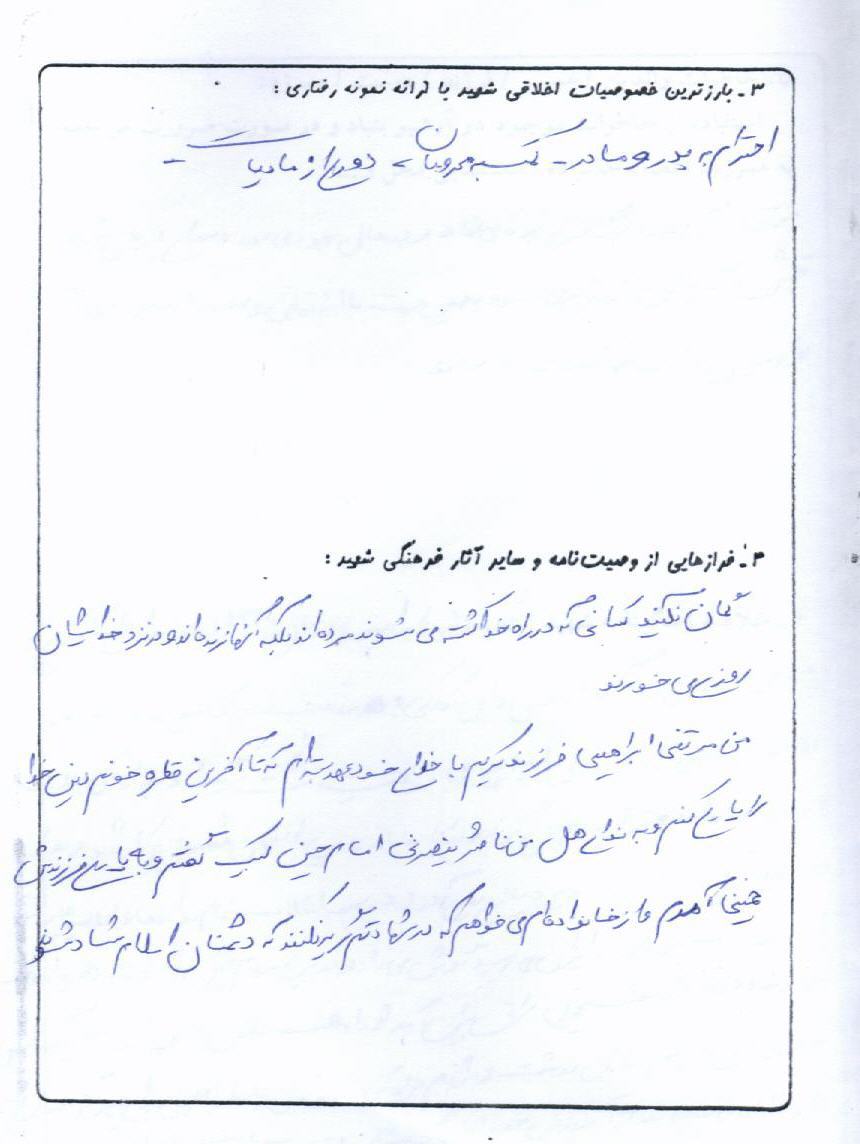 ۳ـ بارزترین خصوصیات اخلاقی شهید با ارائه نمونه رفتاری :
احترام به پدر و مادر ـ کمک به محرومان ـ دوری از مادیات ـ
۴ـ فرازهایی از وصیت‌نامه و سایر آثار فرهنگی شهید :
گمان نکنید کسانی که در راه خدا کشته می شوند مرده اند بلکه آنها زنده اند و در نزد خدایشان
روزی می خورند
من مرتضی ابراهیمی فرزند کریم با خدای خود عهد بسته ام که تا آخرین قطره خونم دین خدا
را یاری کنم و به ندای هل من ناصر ینصرنی امام حسین لبیک گفتم و به یاری فرزندش
خمینی آمدم و از خانواده ام می خواهم که در شهادتم گریه نکنند که دشمنان اسلام شاد شوند